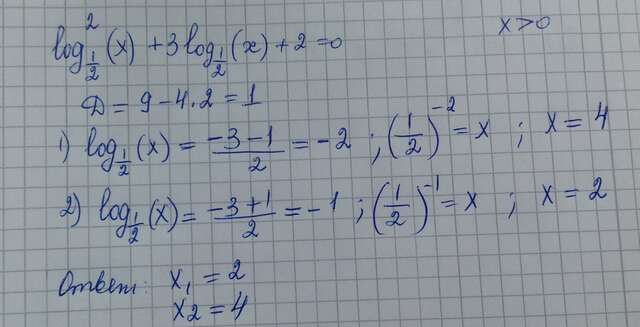 log²_{1/2}(x) + 3log_{1/2}(x) + 2 = 0    x > 0
Д = 9 - 4·2 = 1
1) log_{1/2}(x) = (-3-1)/2 = -2 ; (1/2)^{-2} = x ; x = 4
2) log_{1/2}(x) = (-3+1)/2 = -1 ; (1/2)^{-1} = x ; x = 2
Ответ: x₁ = 2
x₂ = 4